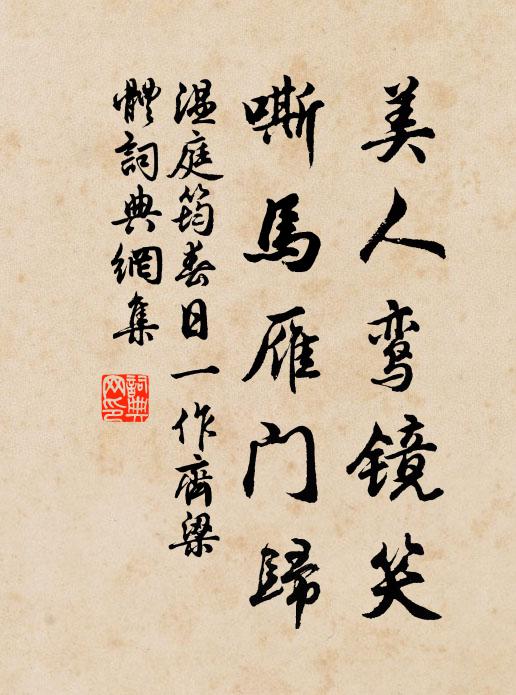 美人鸾镜笑
嘶马雁门歸
温庭筠春日一作齊梁
體詞典網集
詞典
网印